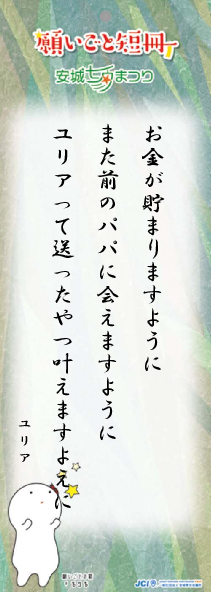 願いごと短冊
安城七夕まつり
お金が貯まりますように
また前のパパに会えますように
ユリアって送ったやつ叶えますよえに
ユリア
JCI